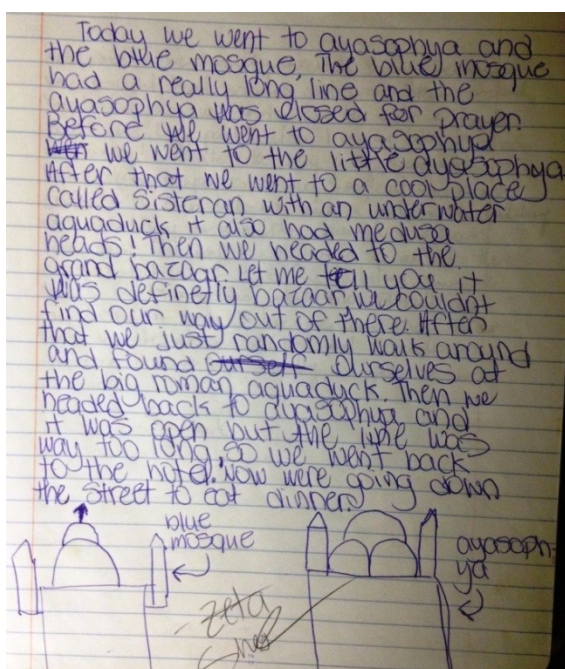 Today we went to ayasophya and
the blue mosque. The blue mosque
had a really long line and the
ayasophya was closed for prayer.
Before we went to ayasophya
we went to the little ayasophya
After that we went to a cool place
called Sisteran with an underwater
aquaduck it also had medusa
heads! Then we headed to the
grand bazaar. Let me tell you it
was definetly bazaar we couldnt
find our way out of there. After
that we just randomly walk around
and found ourself ourselves at
the big roman aquaduck. Then we
headed back to ayasophya and
it was open but the line was
way too long so we went back
to the hotel. Now were going down
the street to eat dinner.
blue
mosque
ayasoph-
ya
-zeta